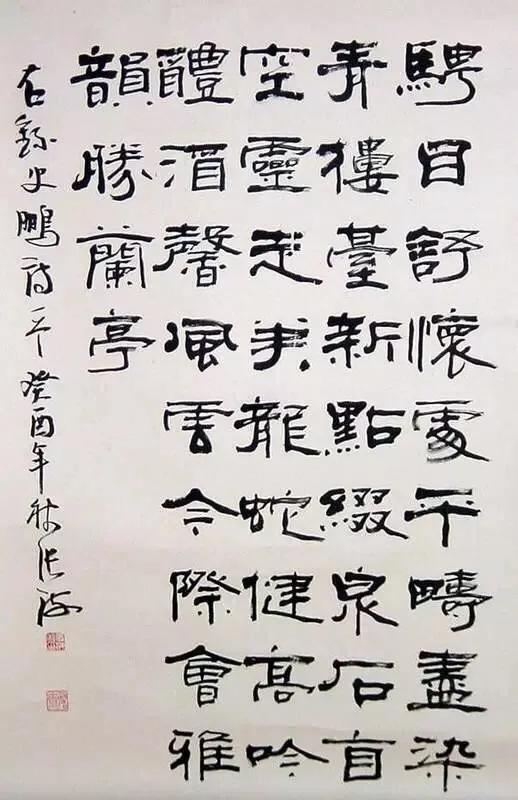 騁目舒懷處千疇盡染
青樓臺新點綴泉石自
空靈走筆龍蛇健高吟
醴酒馨風雲今際會雅
韻勝蘭亭
右錄史鵬詩一首 癸酉年秋張海